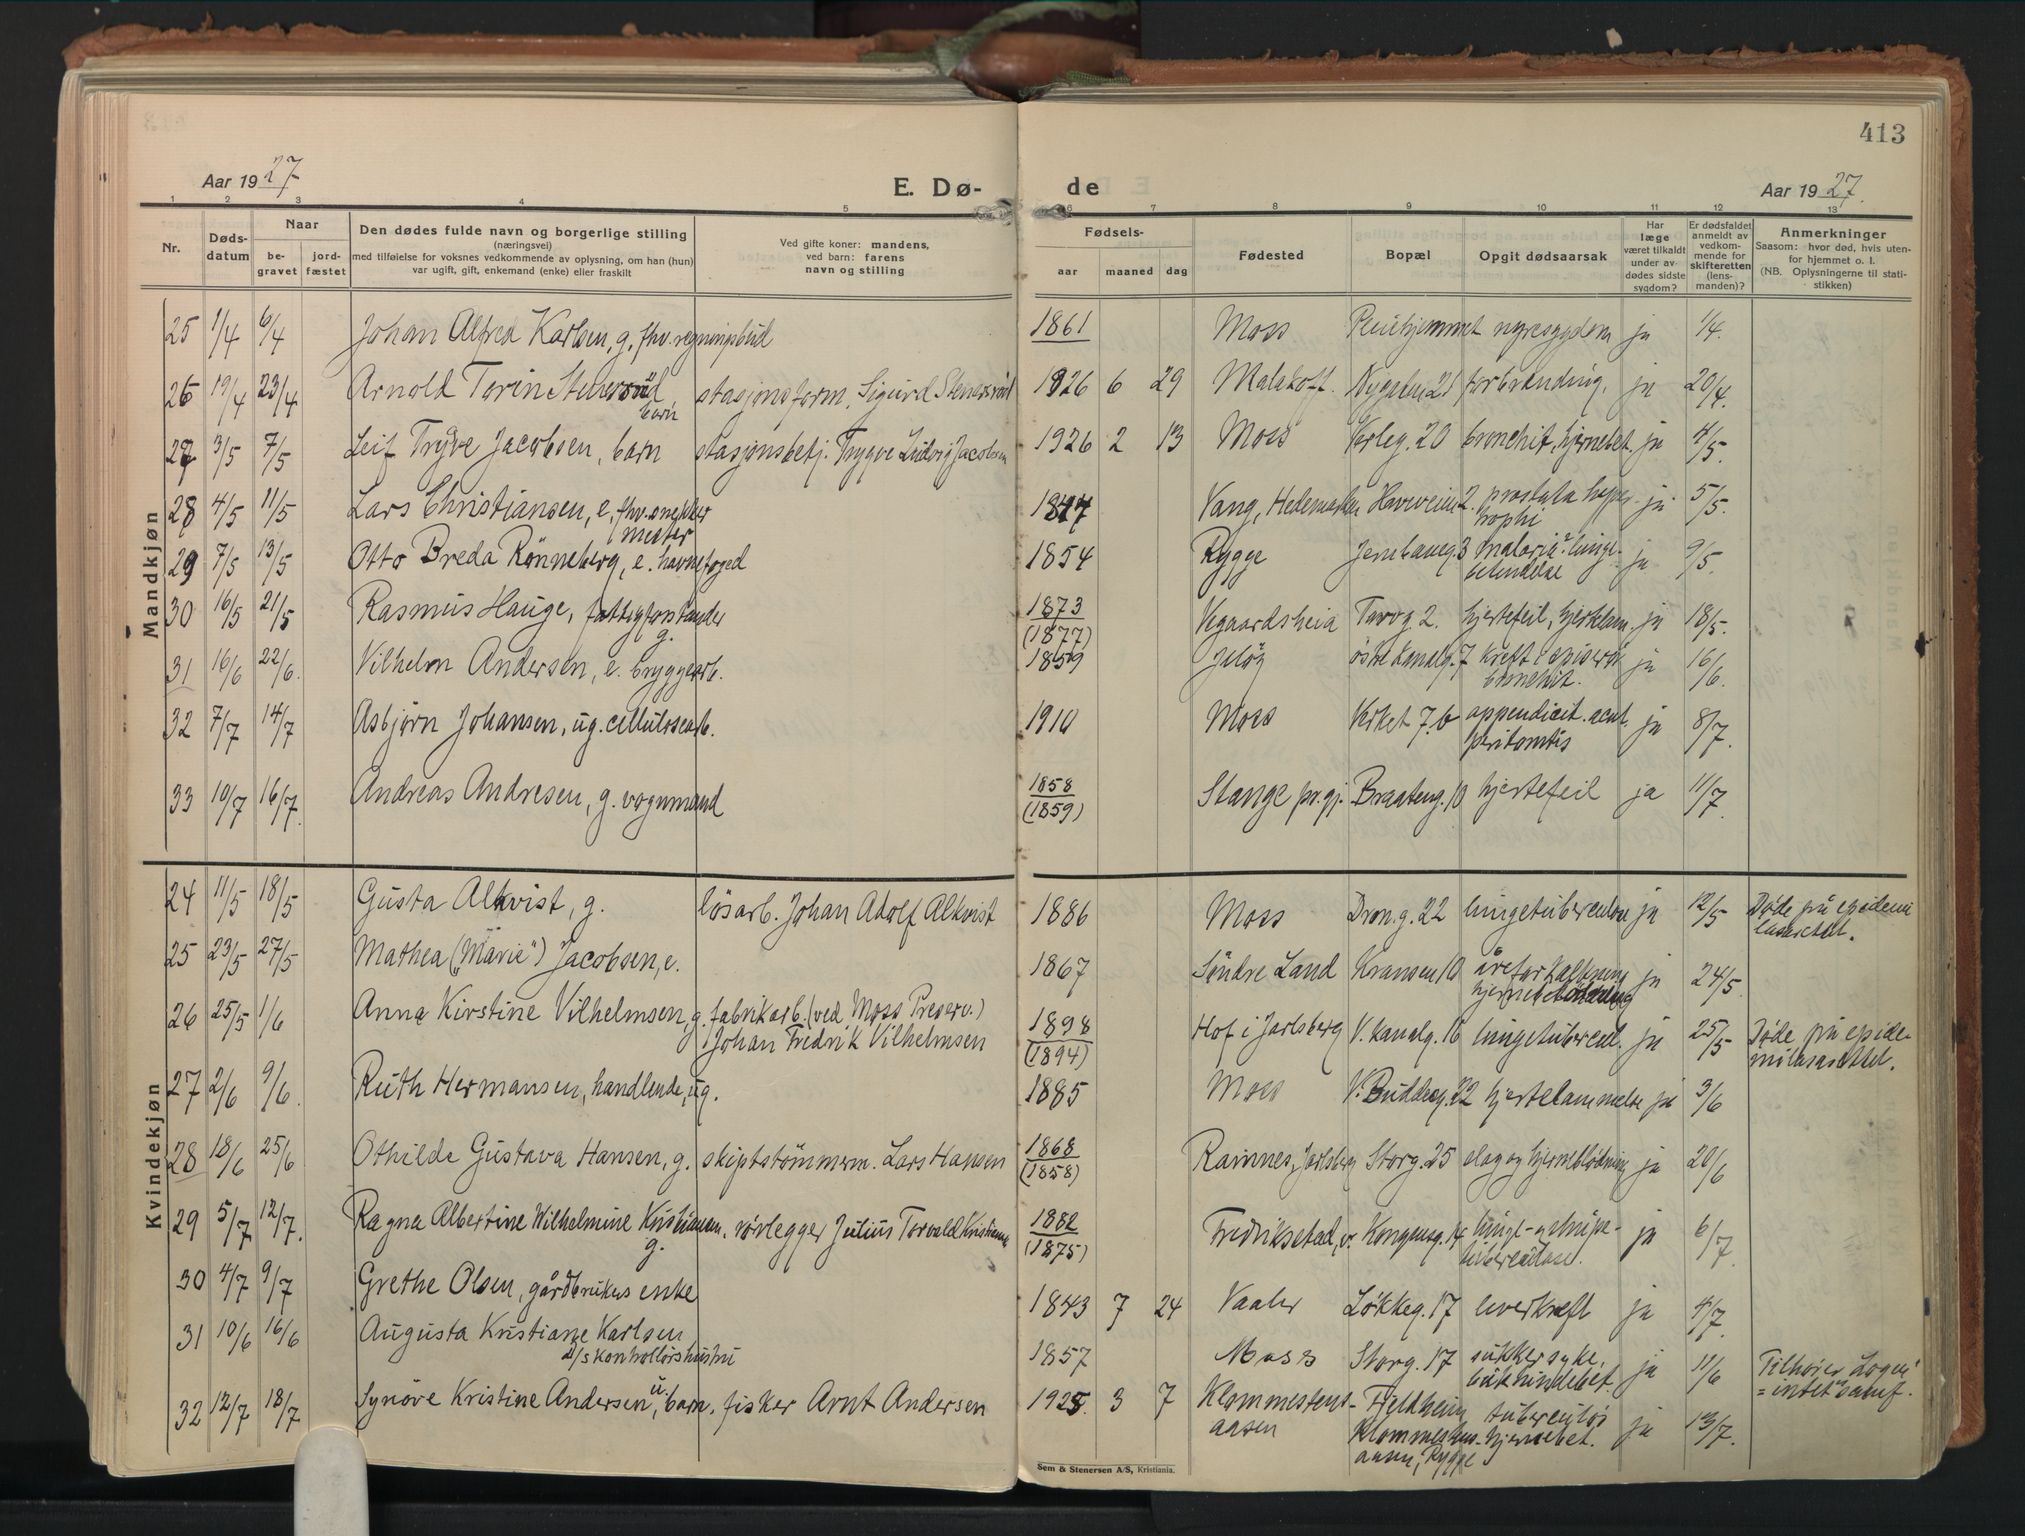 413
Aar 1927
E. Dø-
de
Aar 1927.
1 2 3 4 5 6 7 8 9 10 11 12 13
Nr.
Døds-
datum
Naar
be-
gravet
jord-
fæstet
Den dødes fulde navn og borgerlige stilling
(næringsvei)
med tilføielse for voksnes vedkommende av oplysning, om han (hun)
var ugift, gift, enkemand (enke) eller fraskilt
Ved gifte koner: mandens,
ved barn: farens
navn og stilling
Fødsels-
aar maaned dag
Fødested
Bopæl
Opgit dødsaarsak
Har
læge
været tilkaldt
under av-
dødes sidste
sygdom?
Er dødsfaldet
anmeldt av
vedkom-
mende for
skifteretten
(lens-
manden)?
Anmerkninger
Saasom: hvor død, hvis uten-
for hjemmet o. l.
(NB. Oplysningerne til stati-
stikken)
Mandkjøn
25 1/4 6/4 Johan Alfred Karlsen, g. fhv. regningsbud 1861 Moss Pleiehjemmet nyresygdom ja 1/4.
26 19/4 23/4 Arnold Torin Stensrud, stasjonsform. Sigurd Stensrud 1926 6 29 Malakoff. 21 forbrænding, ja 20/4.
barn
27 3/5 7/5 Leif Trygve Jacobsen, barn stasjonsbetj. Trygve Ludvig Jacobsen 1926 2 13 Moss Verleg. 20 bronchit, hjernebet. ja 4/5.
28 4/5 11/5 Lars Christiansen, e, fhv. snekker 1847 Vang, Hedemarken 2. prostata hyper- ja 5/5.
mester
trophi
29 7/5 13/5 Otto Breda Rönneberg, e. havnefoged 1854 Rygge Jernbaneg. 3 malaria, lunge- ja 9/5.
betendelse
30 16/5 21/5 Rasmus Hauge, fattigforstander 1873 Vegaardsheia Torvg 2. hjertefeil, hjertelam. ja 18/5.
g. (1877)
31 16/6 22/6. Vilhelm Andersen, e. bryggearb. 1859 Jeløy østre Kanalg. 7 kreft i ja 16/6.
bronchit.
32 7/7 14/7 Asbjørn Johansen, ug. cellulosearb. 1910 Moss Verket 7.b appendicit. acut. ja 8/7.
peritonitis
33 10/7 16/7. Andreas Andresen, g. vognmand 1858 Stange pr.gj. Braateng. 10 hjertefeil ja 11/7.
(1859)
Kvindekjøn
24 11/5 18/5 Gusta Alkvist, g. løsarb. Johan Adolf Alkvist 1886 Moss Dron.g. 22 lungetuberculose ja 12/5 Døde på epidemi
lasarettet.
25 23/5 27/5 Mathea („Marie") Jacobsen, e. 1867 Søndre Land Kransen 10 åreforkalkning ja 24/5.
26 25/5 1/6 Anna Kirstine Vilhelmsen, g. fabrikarb. (ved Moss Preserv.) 1898 Hof i Jarlsberg V. Kanalg. 16 lungetubercul. ja 25/5 Døde på epide-
Johan Fredrik Vilhelmsen (1894) milasarettet.
27 2/6 9/6. Ruth Hermansen, handlende, ug. 1885 Moss V. Buddeg. 22 hjertelammelse ja 3/6
28 18/6 25/6 Othilde Gustava Hansen, g. skipstömmerm. Lars Hansen 1868 Ramnes, Jarlsberg Storg. 25 slag og hjerneblødning ja 20/6
(1858)
29 5/7 12/7. Ragna Albertine Wilhelmine Kristiansen, rörlegger Julius Torvald Kristiansen 1882 Fredrikstad, v. Kongensg. 14 lunge- og strupe- ja 6/7.
g. (1875) tuberculose.
30 4/7 9/7 Grethe Olsen, gårdbrukers enke 1843 7 24 Vaaler Løkkeg. 17 leverkreft ja 4/7.
31 10/6 16/6 Augusta Kristiane Karlsen, 1857 Moss Storg. 17 sukkersyke, ja 11/6 Tilhører Logen
d/s kontrollørshustru bukhindebet. = intet samf.
32 12/7 18/7 Synöve Kristine Andersen, u. barn, fisker Arnt Andersen 1925. 3 7 Klommestens- Fjeldheim tuberculøs ja 13/7.
aasen Klommestens- hjernebet.
aasen, Rygge
Sem & Stenersen A/S, Kristiania.